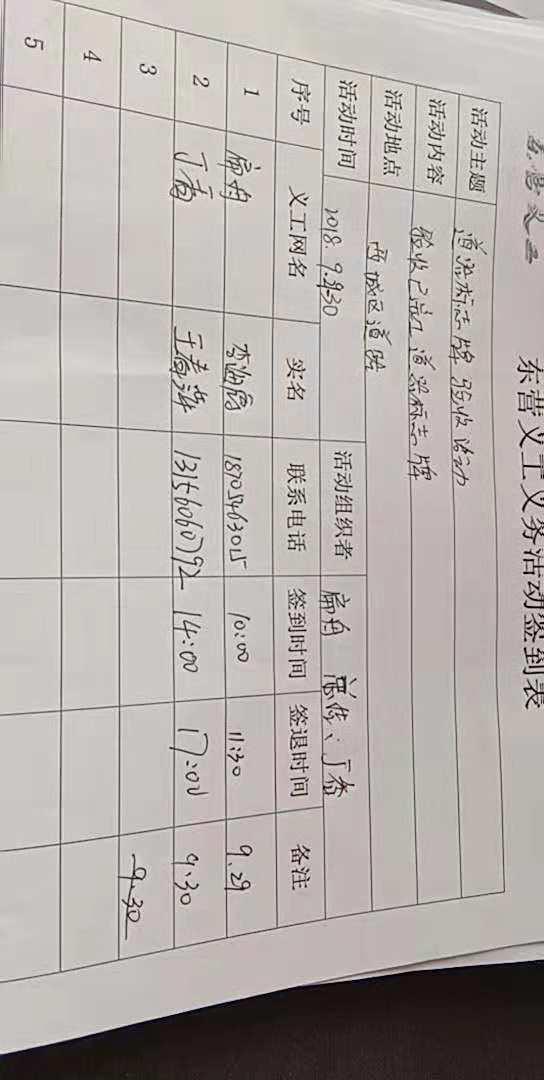 东营义工
东营义工义务活动签到表
活动主题 道路标志牌验收活动
活动内容 验收已施工道路标志牌
活动地点 西城区道路
活动时间 2018.9.30 活动组织者 扁舟 丁香
序号 义工网名 实名 联系电话 签到时间 签退时间 备注
1 扁舟 18705463015 10:00 11:30 9.29
2 丁香 王春 13156060792 14:00 17:00 9.30
3 9.30
4
5